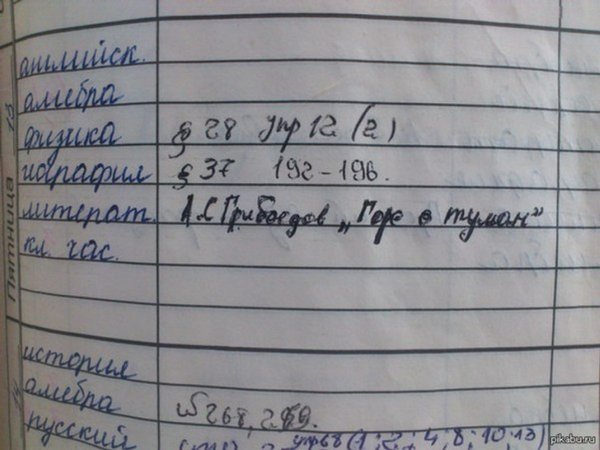 Пятница
английск.
алгебра
физика § 28 упр 12 (2)
география § 37 192-196.
литерат. А.С Грибоедов „Горе о туман"
кл. час.
история
алгебра № 268, 269.
русский упр 68 (1; 2; 4; 8; 10; 13)
pikabu.ru